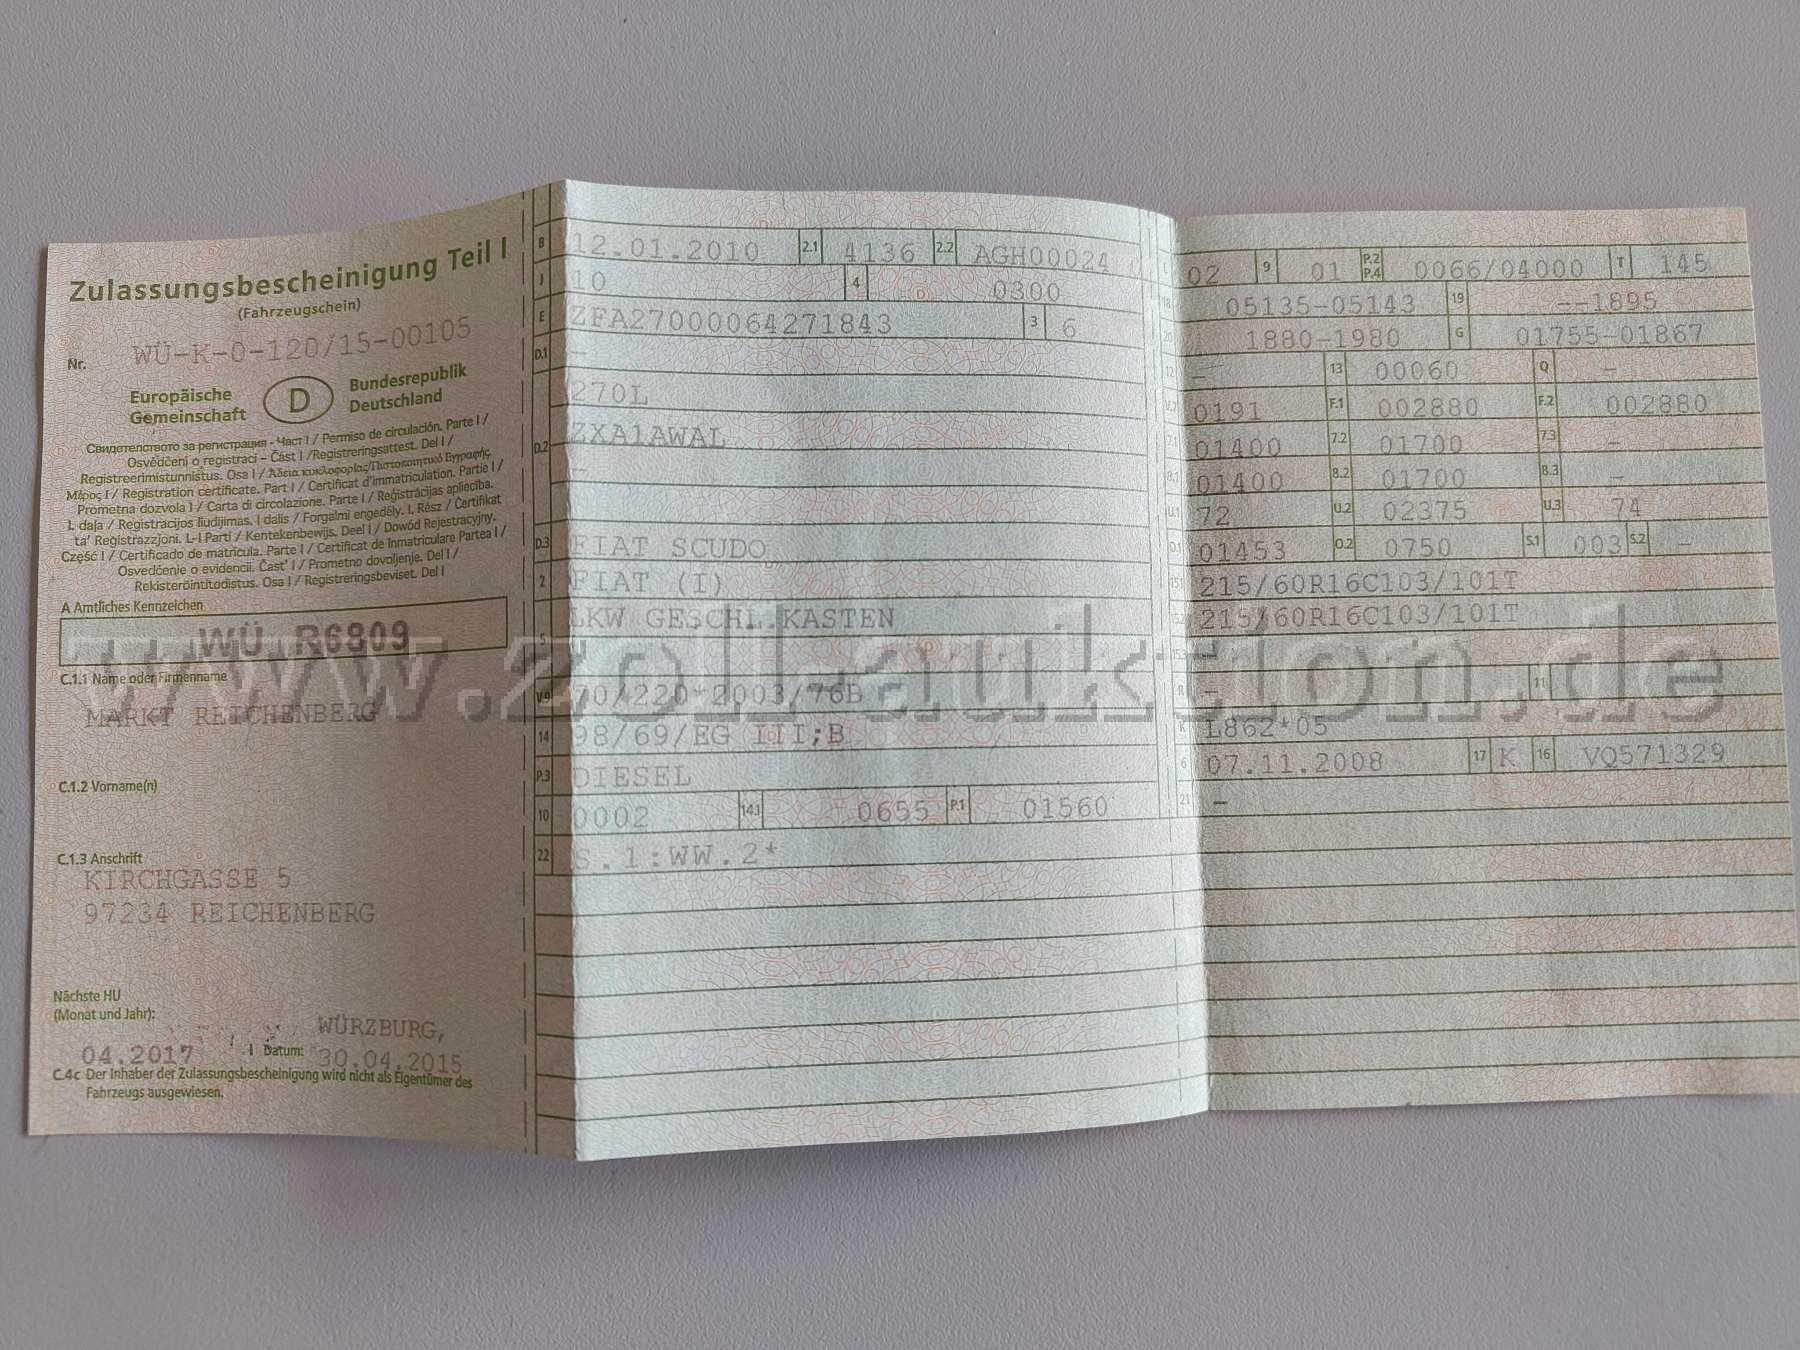 Zulassungsbescheinigung Teil I
(Fahrzeugschein)
Nr. WÜ-K-0-120/15-00105
Europäische Gemeinschaft D Bundesrepublik Deutschland
Свидетелството за регистрация - Част I / Permiso de circulación. Parte I /
Osvědčení o registraci – Část I / Registreringsattest. Del I /
Registreerimistunnistus. Osa I / Άδεια κυκλοφορίας/Πιστοποιητικό Εγγραφής
Μέρος I / Registration certificate. Part I / Certificat d'immatriculation. Partie I /
Prometna dozvola I / Carta di circolazione. Parte I / Reģistrācijas apliecība.
I. daļa / Registracijos liudijimas. I dalis / Forgalmi engedély. I. Rész / Ċertifikat
ta' Reġistrazzjoni. L-I Parti / Kentekenbewijs. Deel I / Dowód Rejestracyjny.
Część I / Certificado de matrícula. Parte I / Certificat de înmatriculare Partea I /
Osvedčenie o evidencii. Časť I / Prometno dovoljenje. Del I /
Rekisteröintitodistus. Osa I / Registreringsbeviset. Del I
A Amtliches Kennzeichen
WÜ R6809
C.1.1 Name oder Firmenname
MARKT REICHENBERG
C.1.2 Vorname(n)
C.1.3 Anschrift
KIRCHGASSE 5
97234 REICHENBERG
Nächste HU
(Monat und Jahr):
WÜRZBURG,
04.2017 Datum: 30.04.2015
C.4c Der Inhaber der Zulassungsbescheinigung wird nicht als Eigentümer des
Fahrzeugs ausgewiesen.
B 12.01.2010 2.1 4136 2.2 AGH00024
J 10 4 0300
E ZFA27000064271843 3 6
D.1 –
270L
D.2 ZXA1AWAL
–
D.3 FIAT SCUDO
2 FIAT (I)
5 LKW GESCHL.KASTEN
V.9 70/220*2003/76B
14 98/69/EG III;B
P.3 DIESEL
10 0002 14.1 0655 P.1 01560
22 S.1:WW.2*
L 02 9 01 P.2 P.4 0066/04000 T 145
18 05135-05143 19 --1895
20 1880-1980 G 01755-01867
12 – 13 00060 Q –
V.7 0191 F.1 002880 F.2 002880
7.1 01400 7.2 01700 7.3 –
8.1 01400 8.2 01700 8.3 –
U.1 72 U.2 02375 U.3 74
O.1 01453 O.2 0750 S.1 003 S.2 –
15.1 215/60R16C103/101T
15.2 215/60R16C103/101T
15.3 –
R – 11
K L862*05
6 07.11.2008 17 K 16 VQ571329
21 –
www.zoll-auktion.de